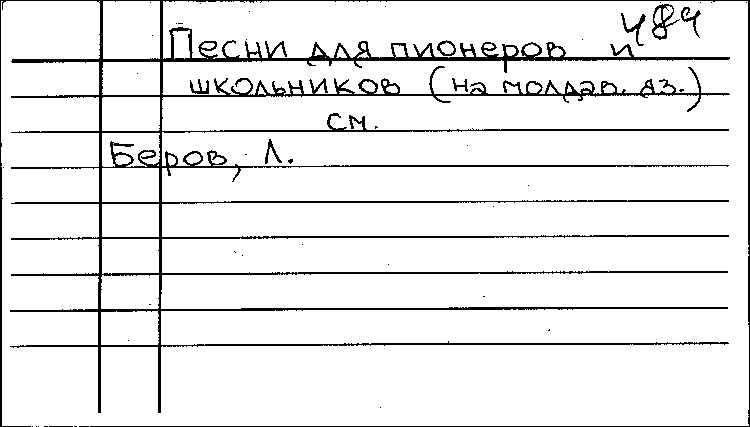 484
Песни для пионеров и
школьников (на молдав. яз.)
см.
Беров, Л.